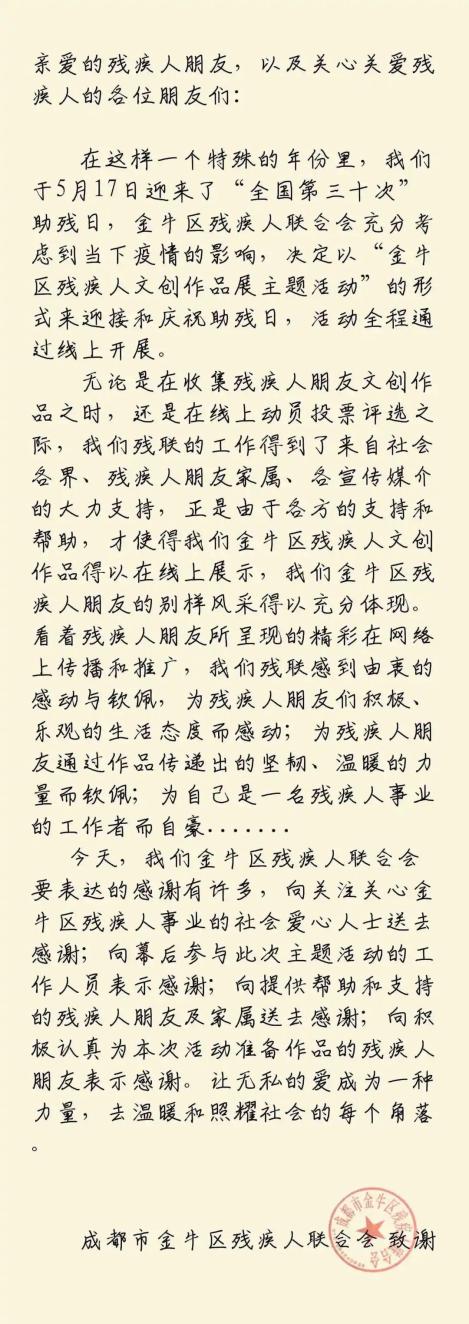 亲爱的残疾人朋友，以及关心关爱残
疾人的各位朋友们：
在这样一个特殊的年份里，我们
于5月17日迎来了“全国第三十次”
助残日，金牛区残疾人联合会充分考
虑到当下疫情的影响，决定以“金牛
区残疾人文创作品展主题活动”的形
式来迎接和庆祝助残日，活动全程通
过线上开展。
无论是在收集残疾人朋友文创作
品之时，还是在线上动员投票评选之
际，我们残联的工作得到了来自社会
各界、残疾人朋友家属、各宣传媒介
的大力支持，正是由于各方的支持和
帮助，才使得我们金牛区残疾人文创
作品得以在线上展示，我们金牛区残
疾人朋友的别样风采得以充分体现。
看着残疾人朋友所呈现的精彩在网络
上传播和推广，我们残联感到由衷的
感动与钦佩，为残疾人朋友们积极、
乐观的生活态度而感动；为残疾人朋
友通过作品传递出的坚韧、温暖的力
量而钦佩；为自己是一名残疾人事业
的工作者而自豪.......
今天，我们金牛区残疾人联合会
要表达的感谢有许多，向关注关心金
牛区残疾人事业的社会爱心人士送去
感谢；向幕后参与此次主题活动的工
作人员表示感谢；向提供帮助和支持
的残疾人朋友及家属送去感谢；向积
极认真为本次活动准备作品的残疾人
朋友表示感谢。让无私的爱成为一种
力量，去温暖和照耀社会的每个角落
。
成都市金牛区残疾人联合会 致谢
成都市金牛区残疾人联合会